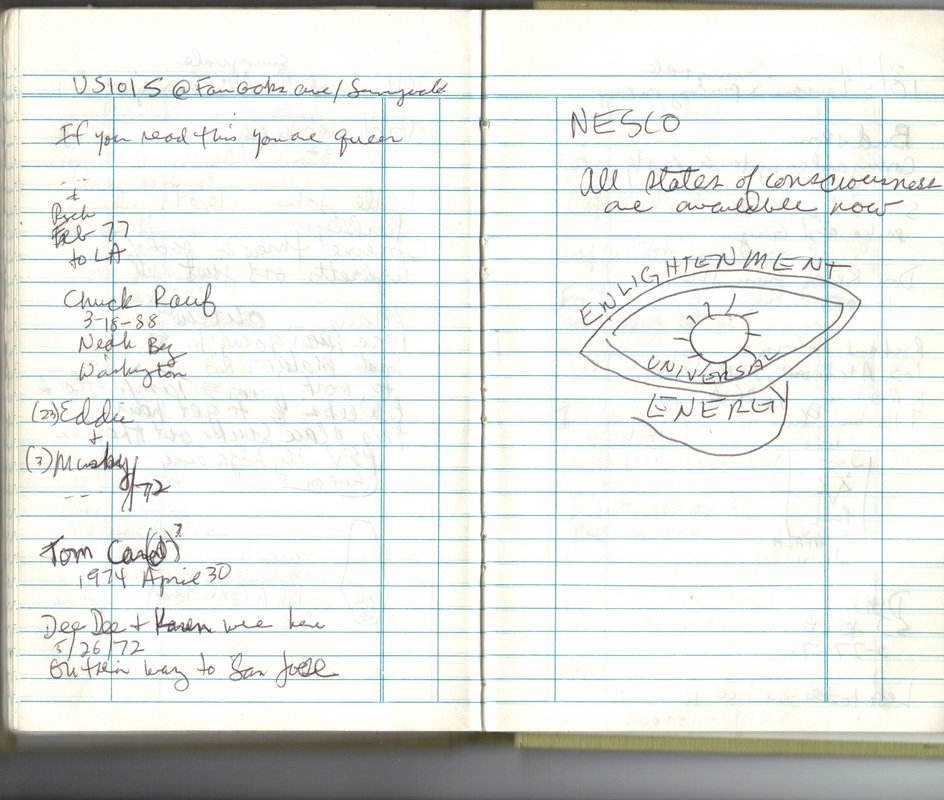 US101S @ Fair Oaks ave/Sunnyvale
If you read this you are queer
+
Rich
Feb 77
to LA
Chuck Rauf
3-18-88
Neah Bay
Washington
(23) Eddie
+
(?) Musky
/72
Tom
1974 April 30
Dee Dee + Karen were here
5/26/72
On their way to San Jose
NESCO
All states of consciousness
are available now
ENLIGHTENMENT
UNIVERSAL
ENERGY